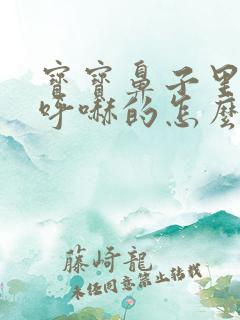 寶寶鼻子里
呼嚇的怎麼
藤崎龍
未經同意禁止轉載